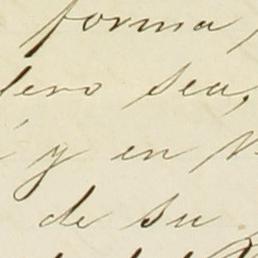 forma,
lero sea,
y en
de su